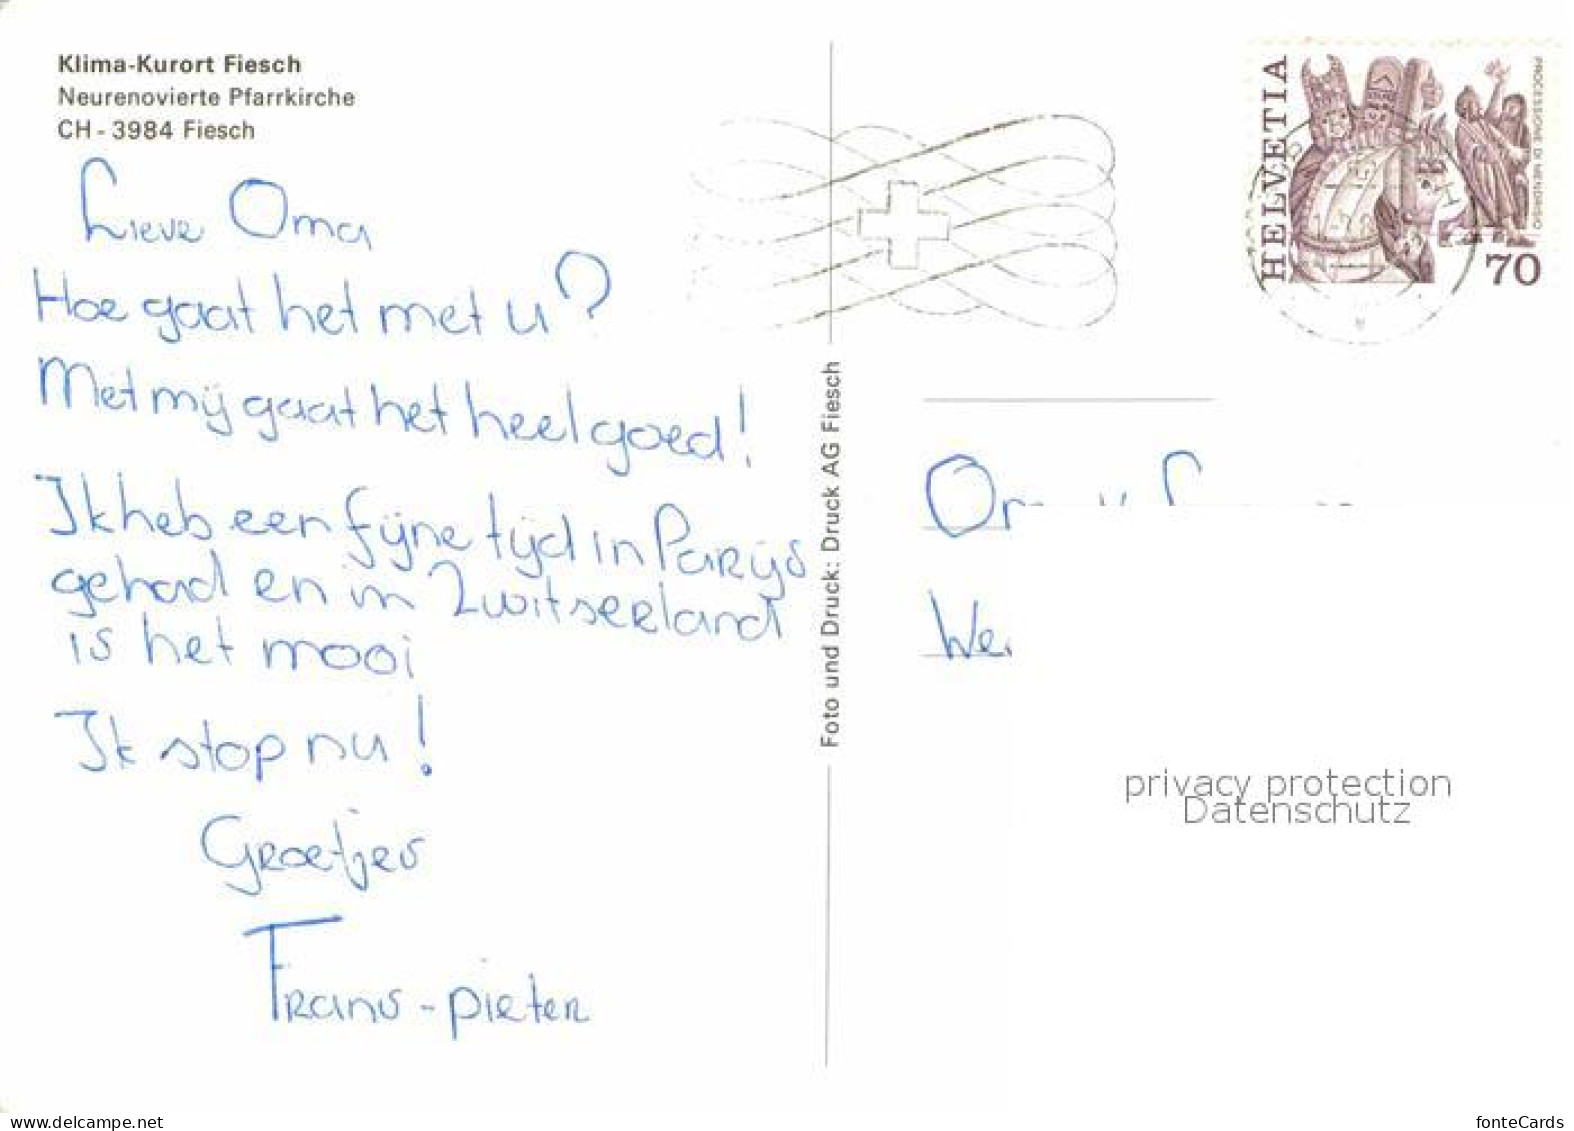 Klima-Kurort Fiesch
Neurenovierte Pfarrkirche
CH - 3984 Fiesch
Lieve Oma
Hoe gaat het met u?
Met mij gaat het heel goed!
Ik heb een fijne tijd in Parijs
gehad en in Zwitserland
is het mooi
Ik stop nu!
Groetjes
Frans-pieter
Foto und Druck: Druck AG Fiesch
HELVETIA
PROCESSIONE DI MENDRISIO
70
We
privacy protection
Datenschutz
www.delcampe.net
fonteCards